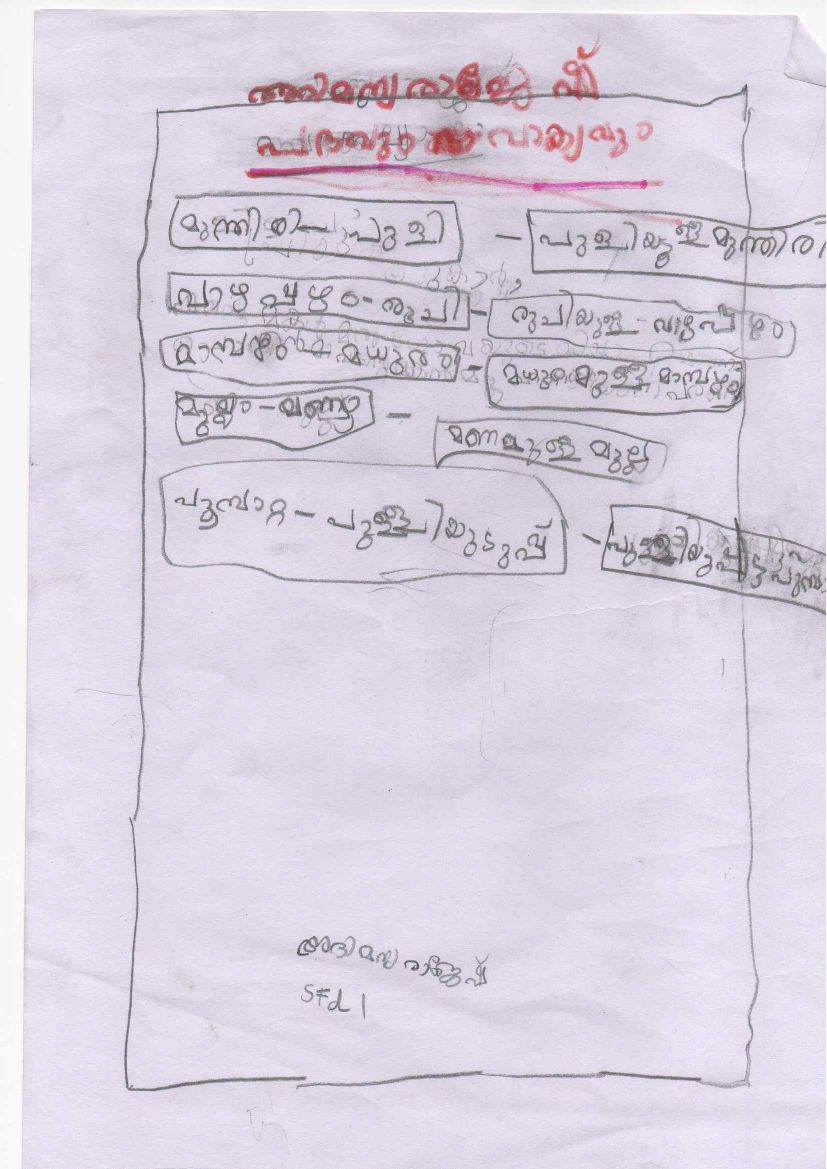 അഭിമന്യു രാജേഷ്
പദവും വാക്യവും
മുന്തിരി - പുളി - പുളിയുള്ള മുന്തിരി
വാഴപ്പഴം - രുചി - രുചിയുള്ള - വാഴപ്പഴം
മാമ്പഴം - മധുരം - മധുരമുള്ള മാമ്പഴം
മുല്ല - മണം - മണമുള്ള മുല്ല
പൂമ്പാറ്റ - പുള്ളിയുടുപ്പ് - പുള്ളിയുടുപ്പിട്ട
അഭിമന്യു രാജേഷ്
Std 1